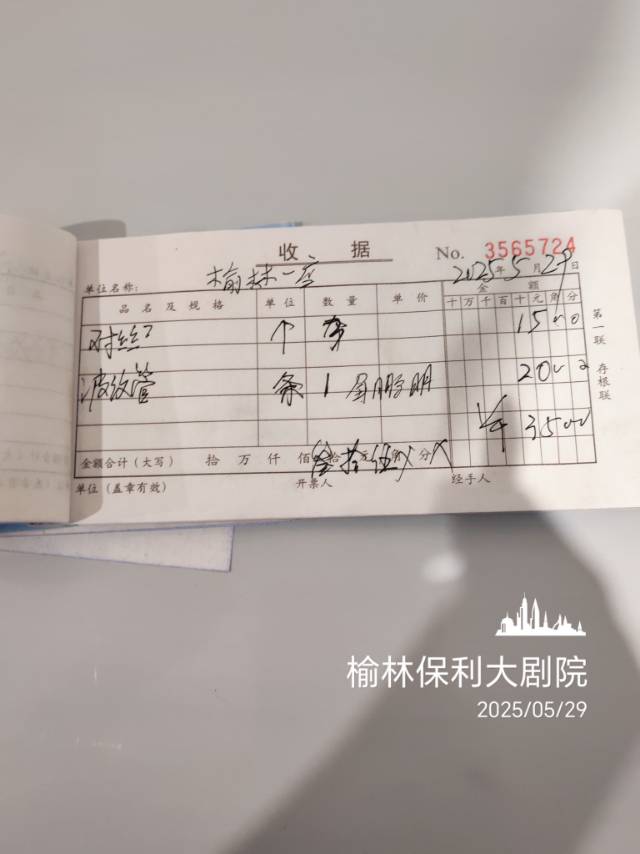 收 据 No. 3565724
单位名称： 榆林一 2025年5月29日
品名及规格 单位 数量 单价 金额
十 万 千 百 十 元 角 分
对丝 个 1500
波纹管 条 1 2000
¥ 3500
金额合计（大写） 拾 万 仟 佰 叁拾伍 元 角 分
单位（盖章有效） 开票人 经手人
第一联 存根联
榆林保利大剧院
2025/05/29